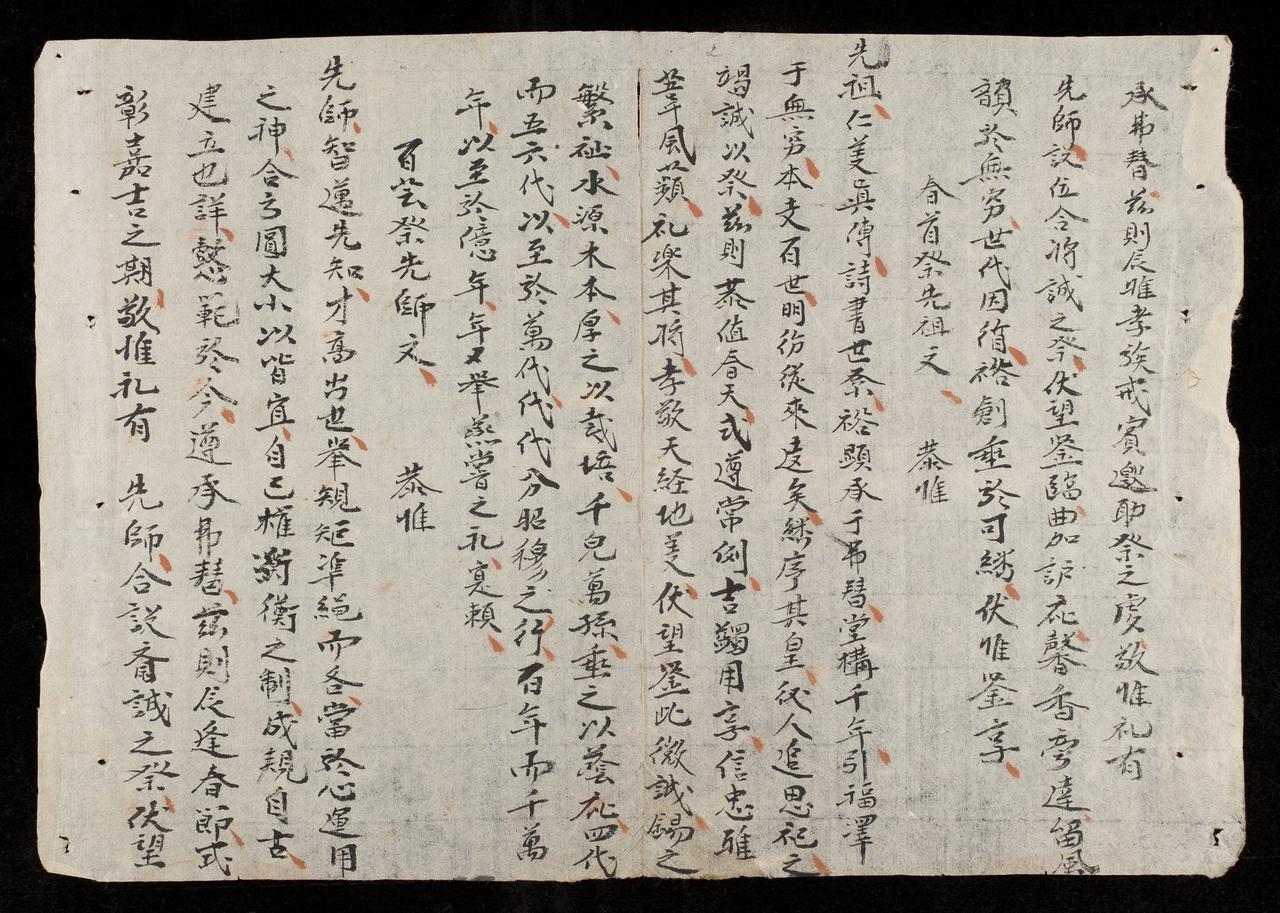 承弗替茲則辰惟孝族戒賓邀助祭之虔敬惟礼有
先師説位合将誠之祭伏望鉴臨曲加訴㤗馨香旁達留風
韻於無穷世代因循裕創垂於可繼伏惟鉴享
春首祭先祖文 恭惟
先祖仁美真傳詩書世系裕顕承于弗替堂構千年引福澤
于無穷本支百世明彷従來遠矣繼序其皇後人追思祀之
竭誠以祭茲則恭值春天式遵常例吉蠲用享信忠雅
豊年風蘋礼楽其将孝敬天経地義伏望鉴此微誠錫之
繁祉水源木本厚之以栽培千兒萬孫垂之以蔭庇四代
而五六代以至於萬代代代分昭穆之行百年而千萬
年以至於億年年又舉烝嘗之礼寔頼
百芸祭先師文 恭惟
先師智邁先知才高出世舉規矩準繩而各當於心運用
之神合方圓大小以皆宜自己權衡之制成規自古
建立也詳懿範於今遵承弗替茲則辰逢春節式
彰嘉吉之期敬惟礼有 先師合説齊誠之祭伏望